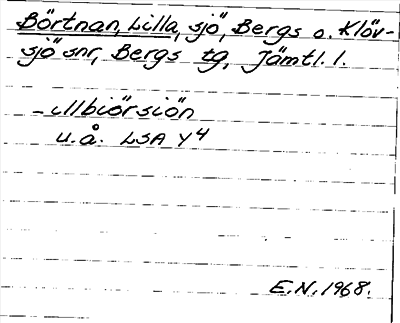 Börtnan, Lilla, sjö, Bergs o. Klöv-
sjö snr, Bergs tg, Jämtl. l.
– illbiörsiön
u.å. LSA Y4
E.N. 1968.